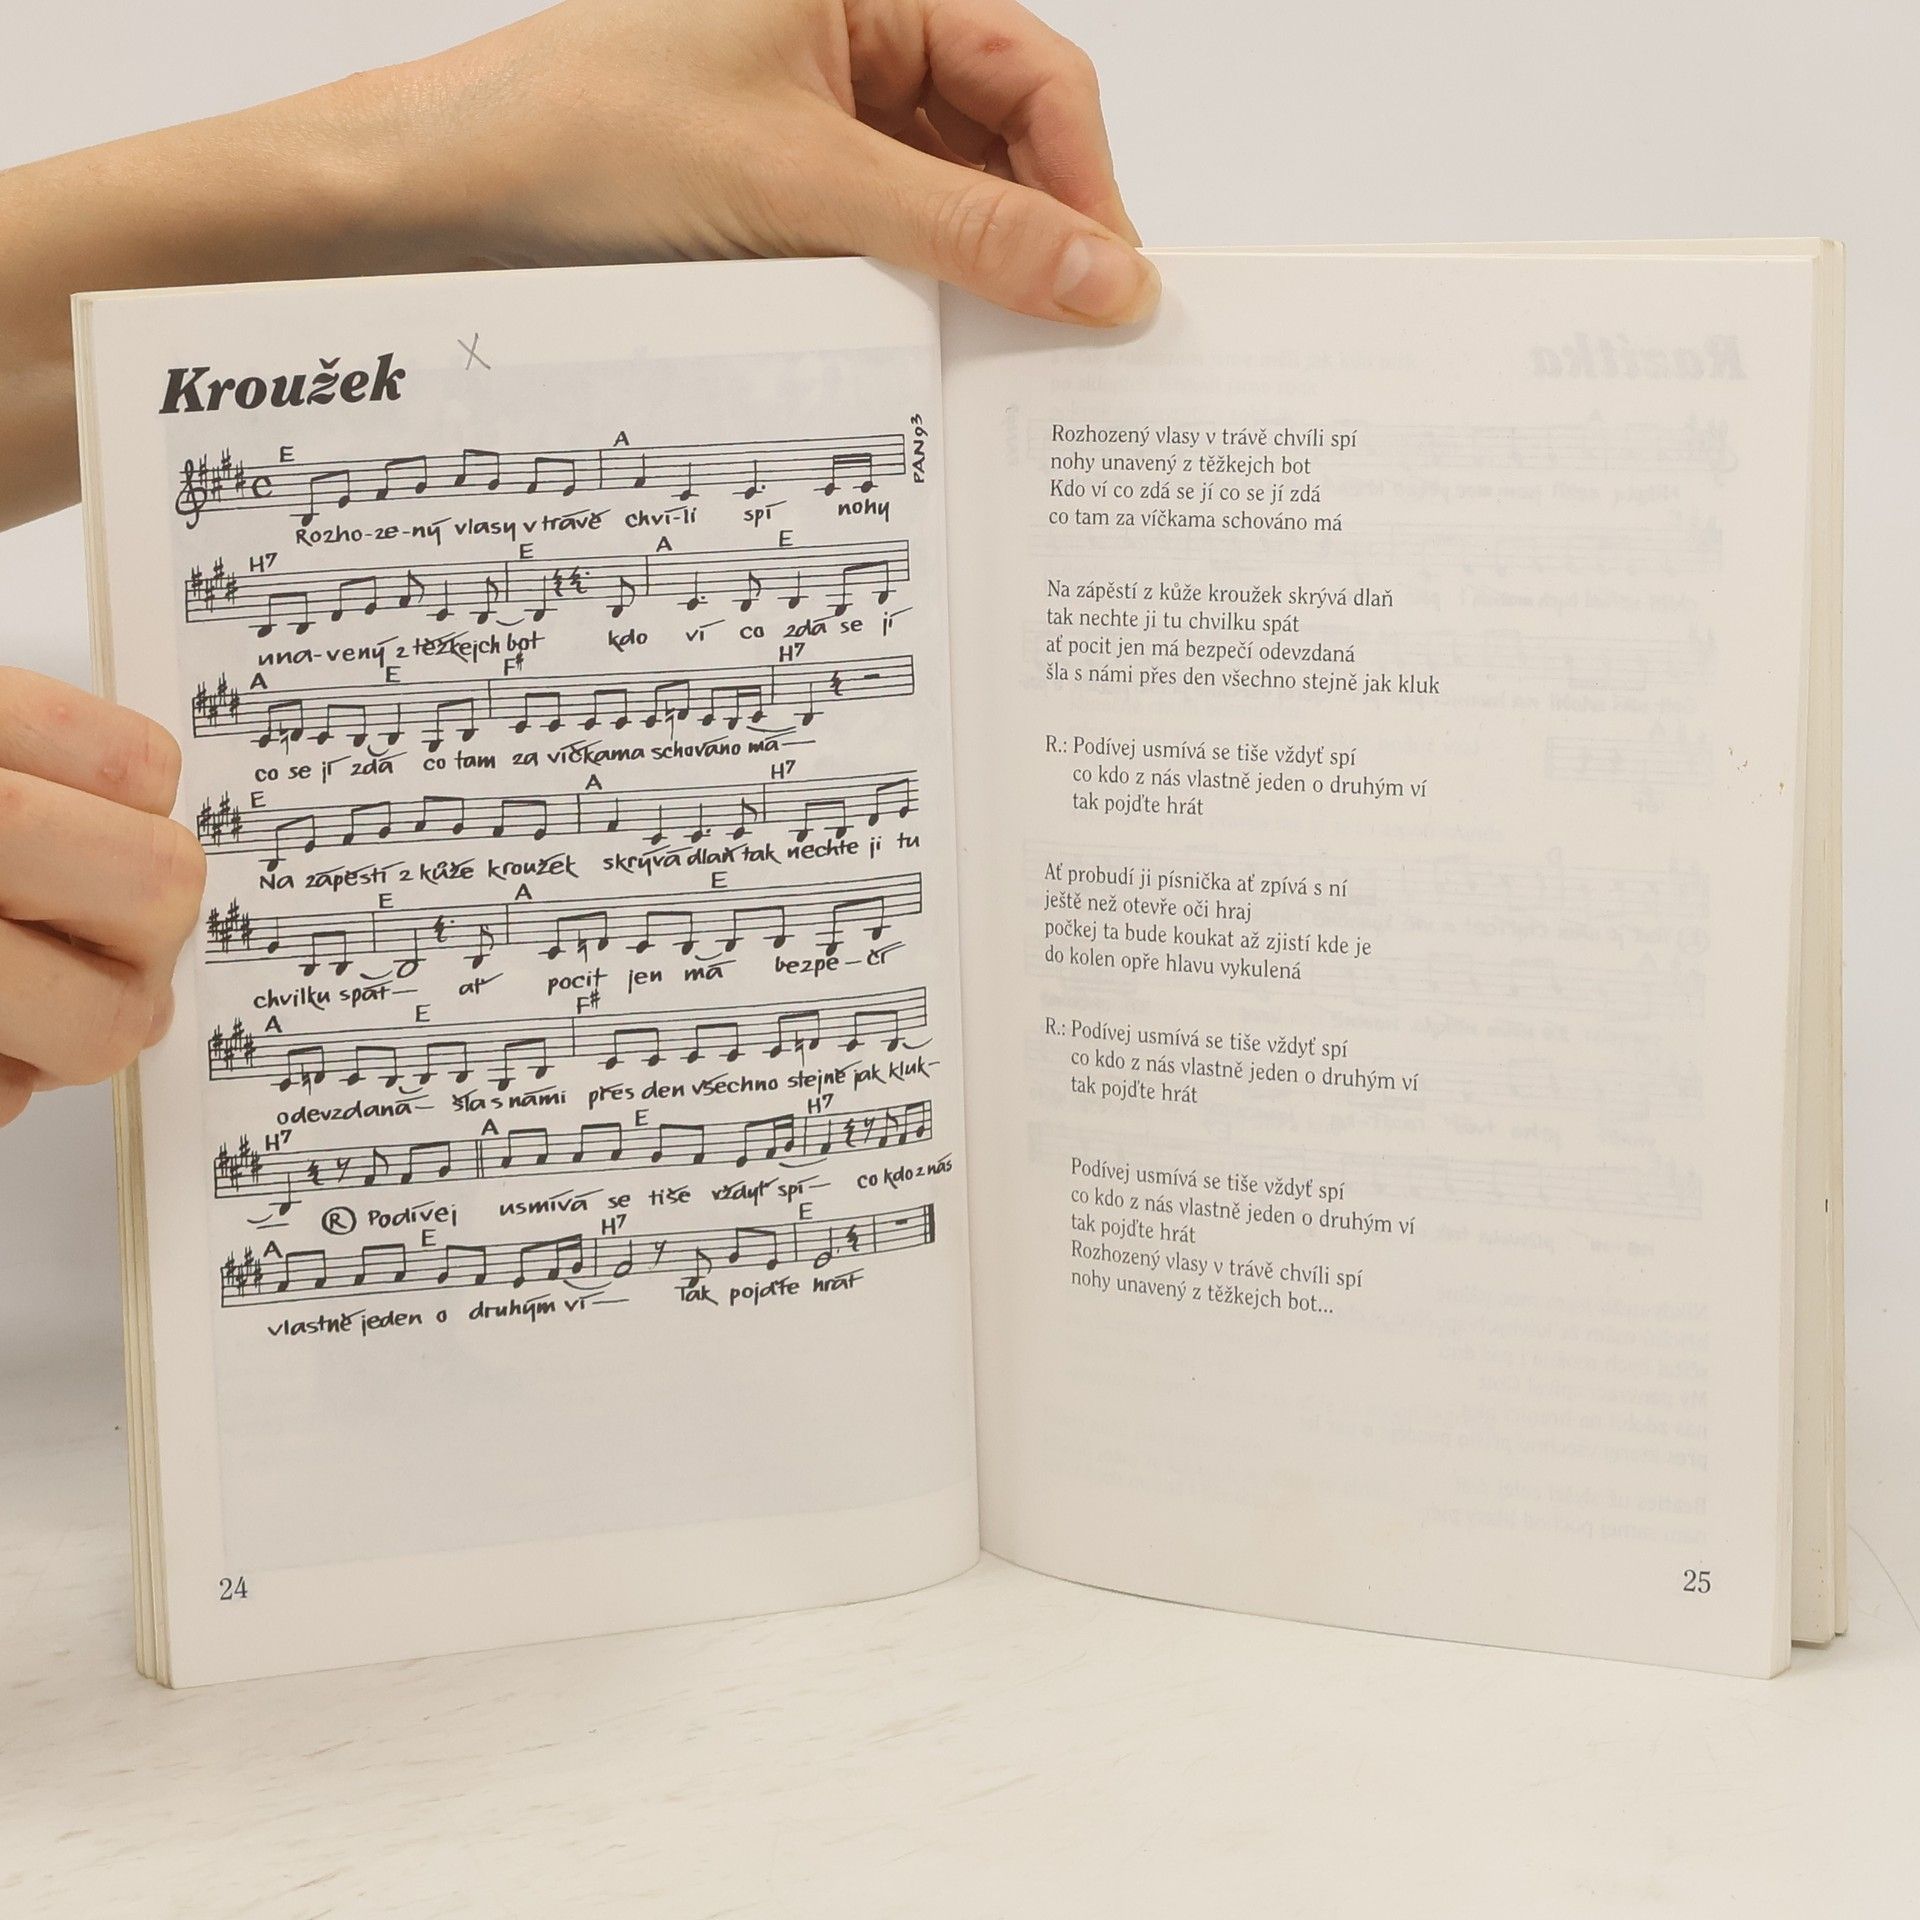 Kroužek
X
PAN93
E A
Rozho-ze-ný vlasy v trávě chví-li spí nohy
H7 E A E
una-vený z těžkejch bot kdo ví co zdá se jí
A E F# H7
co se jí zdá co tam za víčkama schováno má—
E A H7
Na zápěstí z kůže kroužek skrývá dlaň tak nechte ji tu
E A E
chvilku spát— ať pocit jen má bezpe-čí
A E F#
odevzdaná— šla s námi přes den všechno stejně jak kluk-
H7 A E H7
R Podívej usmívá se tiše vždyť spí— co kdo z nás
A E H7 E
vlastně jeden o druhým ví— Tak pojďte hrát
24
Rozhozený vlasy v trávě chvíli spí
nohy unavený z těžkejch bot
Kdo ví co zdá se jí co se jí zdá
co tam za víčkama schováno má
Na zápěstí z kůže kroužek skrývá dlaň
tak nechte ji tu chvilku spát
ať pocit jen má bezpečí odevzdaná
šla s námi přes den všechno stejně jak kluk
R.: Podívej usmívá se tiše vždyť spí
co kdo z nás vlastně jeden o druhým ví
tak pojďte hrát
Ať probudí ji písnička ať zpívá s ní
ještě než otevře oči hraj
počkej ta bude koukat až zjistí kde je
do kolen opře hlavu vykulená
R.: Podívej usmívá se tiše vždyť spí
co kdo z nás vlastně jeden o druhým ví
tak pojďte hrát
Podívej usmívá se tiše vždyť spí
co kdo z nás vlastně jeden o druhým ví
tak pojďte hrát
Rozhozený vlasy v trávě chvíli spí
nohy unavený z těžkejch bot...
25